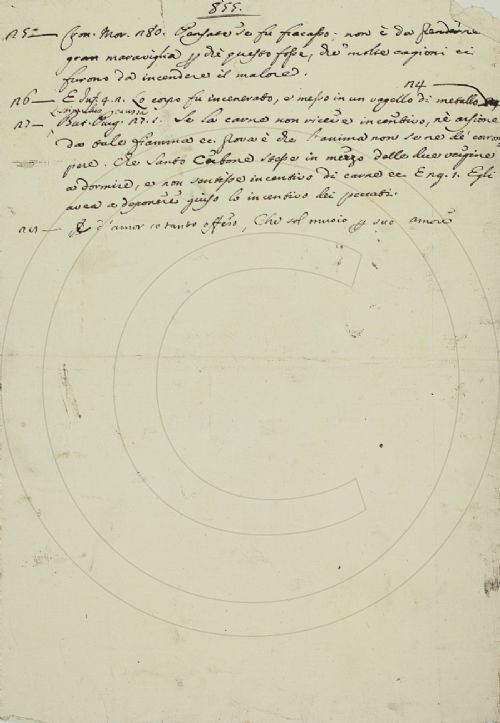 855.
Cron. Mor. 280. Pensate se fu fracasso: non è da prendere
gran maraviglia di questo fosse, che molte cagioni ci
furono da incendere il malore.
R4
R6 — Lo corpo fu incenerato, e messo in un vagello di metallo
R7 — Se la carne non riceve incentivo, nè arsione
da tale fiamma ec. prova è che l'anima non se ne dè corrom
pere. Che Santo stesse in mezzo delle due vergine
a dormire, e non sentisse incentivo di carne ec. E 1. Egli
avea a deponere giuso lo incentivo dei peccati.
d'amor tanto offeso, Che sol muoio suo amore